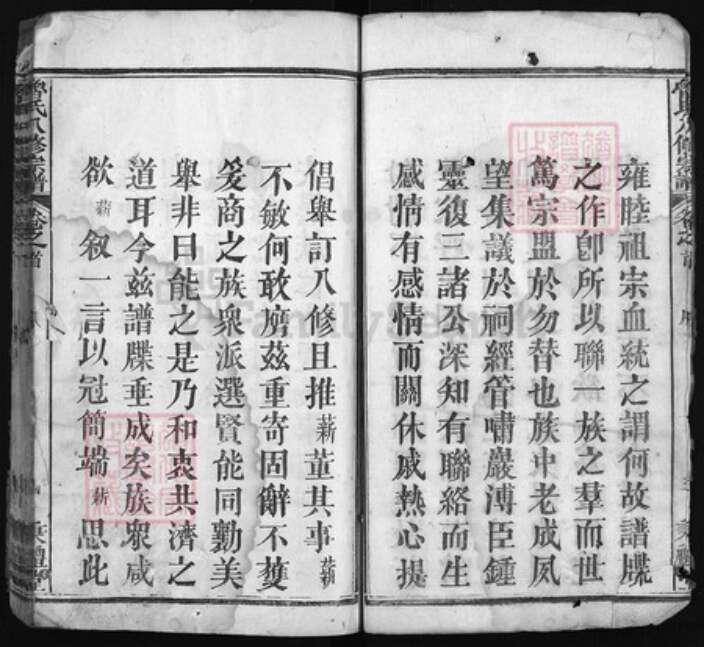 雍睦祖宗血統之謂何故譜牒
之作卽所以聯一族之羣而世
篤宗盟於勿替也族中老成夙
望集議於祠經管嘯巖溥臣鍾
靈復三諸公深知有聯絡而生
感情有感情而關休戚熱心提
倡舉訂八修且推薪董其事薪
不敏何敢膺茲重寄固辭不獲
爰商之族衆派選賢能同勷美
舉非曰能之是乃和衷共濟之
道耳今茲譜牒垂成矣族衆咸
欲薪叙一言以冠簡端薪思此
曾氏八修宗譜
卷之首
FamilySearch